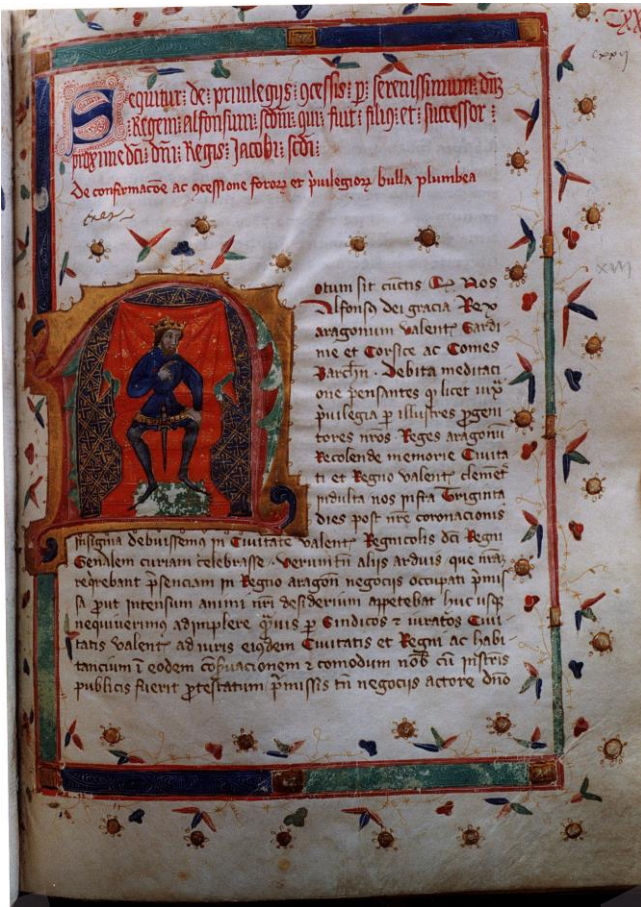 Sequitur de privilegijs ɔcessis ꝑ serenissimum dn̄ȝ
Regem alfonsum scd̄m qui fuit filiꝰ et successor
proxime dc̄i dn̄i Regis Jacobi scd̄i
De confirmac̄oe ac ɔcessione fororꝝ et p̄uilegiorꝝ bulla plumbea
otum sit cūctis Nos
Alfonsꝰ dei gracia Rex
aragonum Valent̄ Sardi-
nie et Corsice ac Comes
Barch̄n. Debita meditaci
one pensantes licet
p̄uilegia ꝑ illustres ꝓgeni
tores nr̄os Reges aragonū
Recolende memorie Ciuita
ti et Regno Valent̄ clement̄
indulta nos infra Triginta
dies post nr̄e coronacionis
insignia debuissemꝰ in Ciuitate Valent̄ Regnicolis dc̄i Regni
Gen̄alem curiam celebrasse. Verumtn̄ alijs arduis que nr̄am
req̄rebant p̄senciam in Regno aragon̄ negocijs occupati p̄mis
sa ꝓut intensum animi nr̄i desiderium appetebat huc usq̨
nequiuerimus adimplere q̄uis ꝑ Sindicos ⁊ iuratos Ciui
tatis Valent̄ ac iuris eiꝰdem Ciuitatis et Regni ac habi-
tancium ī eodem cōẜuacionem ⁊ comodum nob̄ cū īstr̄is
publicis fuerit ꝓtestatum p̄missis tn̄ negocijs actore dn̄o
cxxij